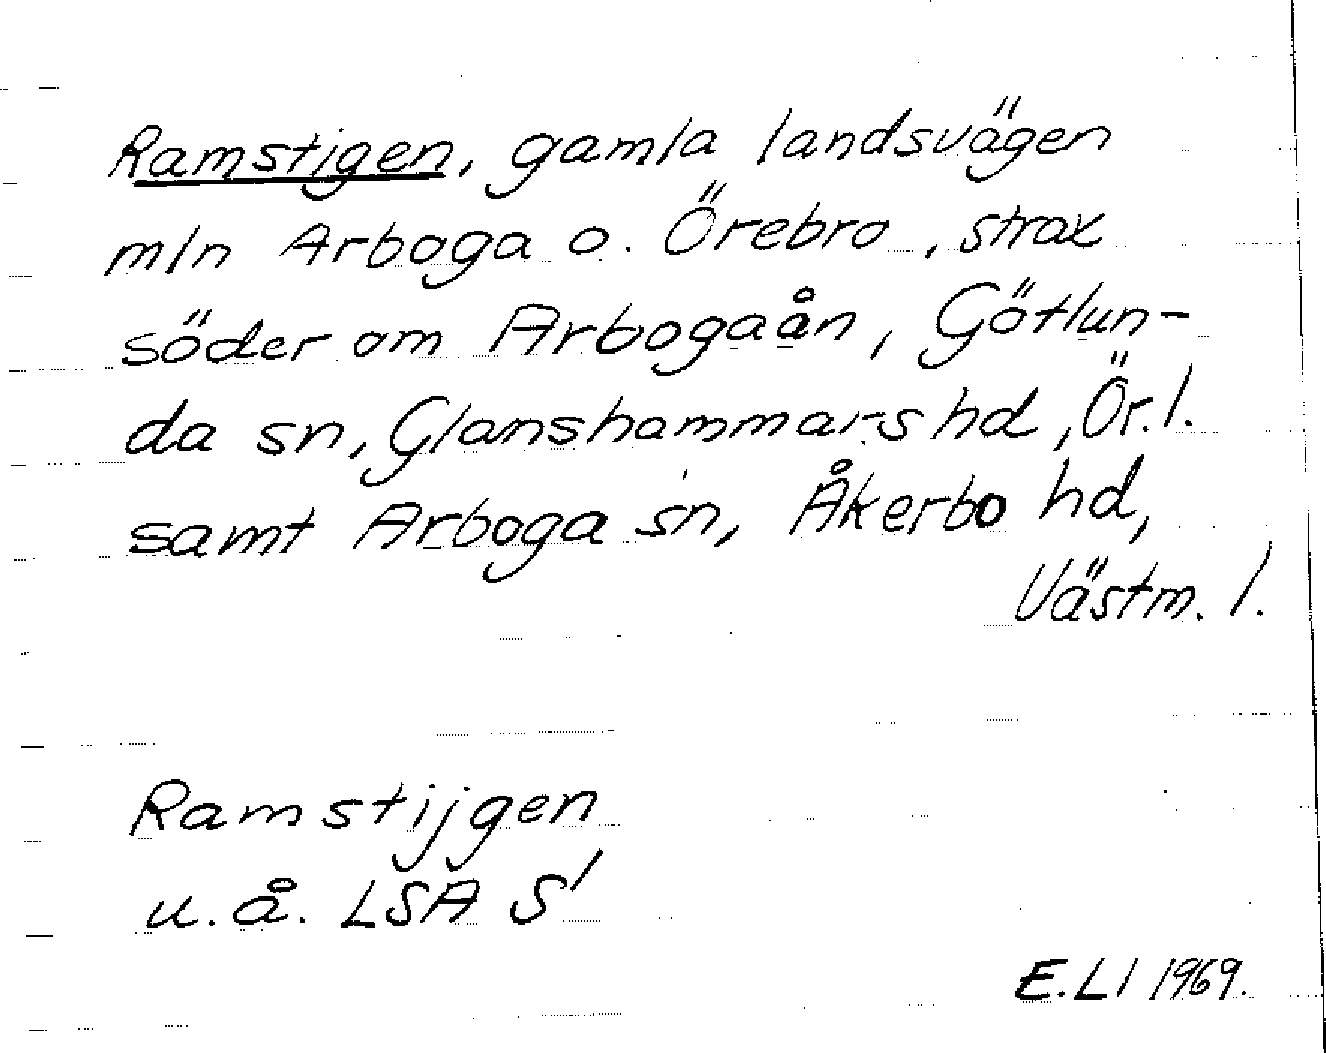 Ramstigen, gamla landsvägen
mln Arboga o. Örebro, strax
söder om Arbogaån, Götlun-
da sn, Glanshammars hd, Ör.l.
samt Arboga sn, Åkerbo hd,
Västm. l.
Ramstijgen
u.å. LSA S'
E.Ll 1969.